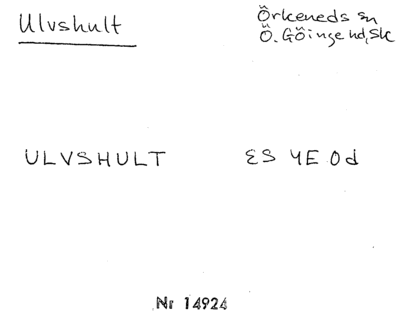 Ulvshult
Örkeneds sn
Ö. Göinge hd, Sk
ULVSHULT ES 4E 0d
Nr 14924